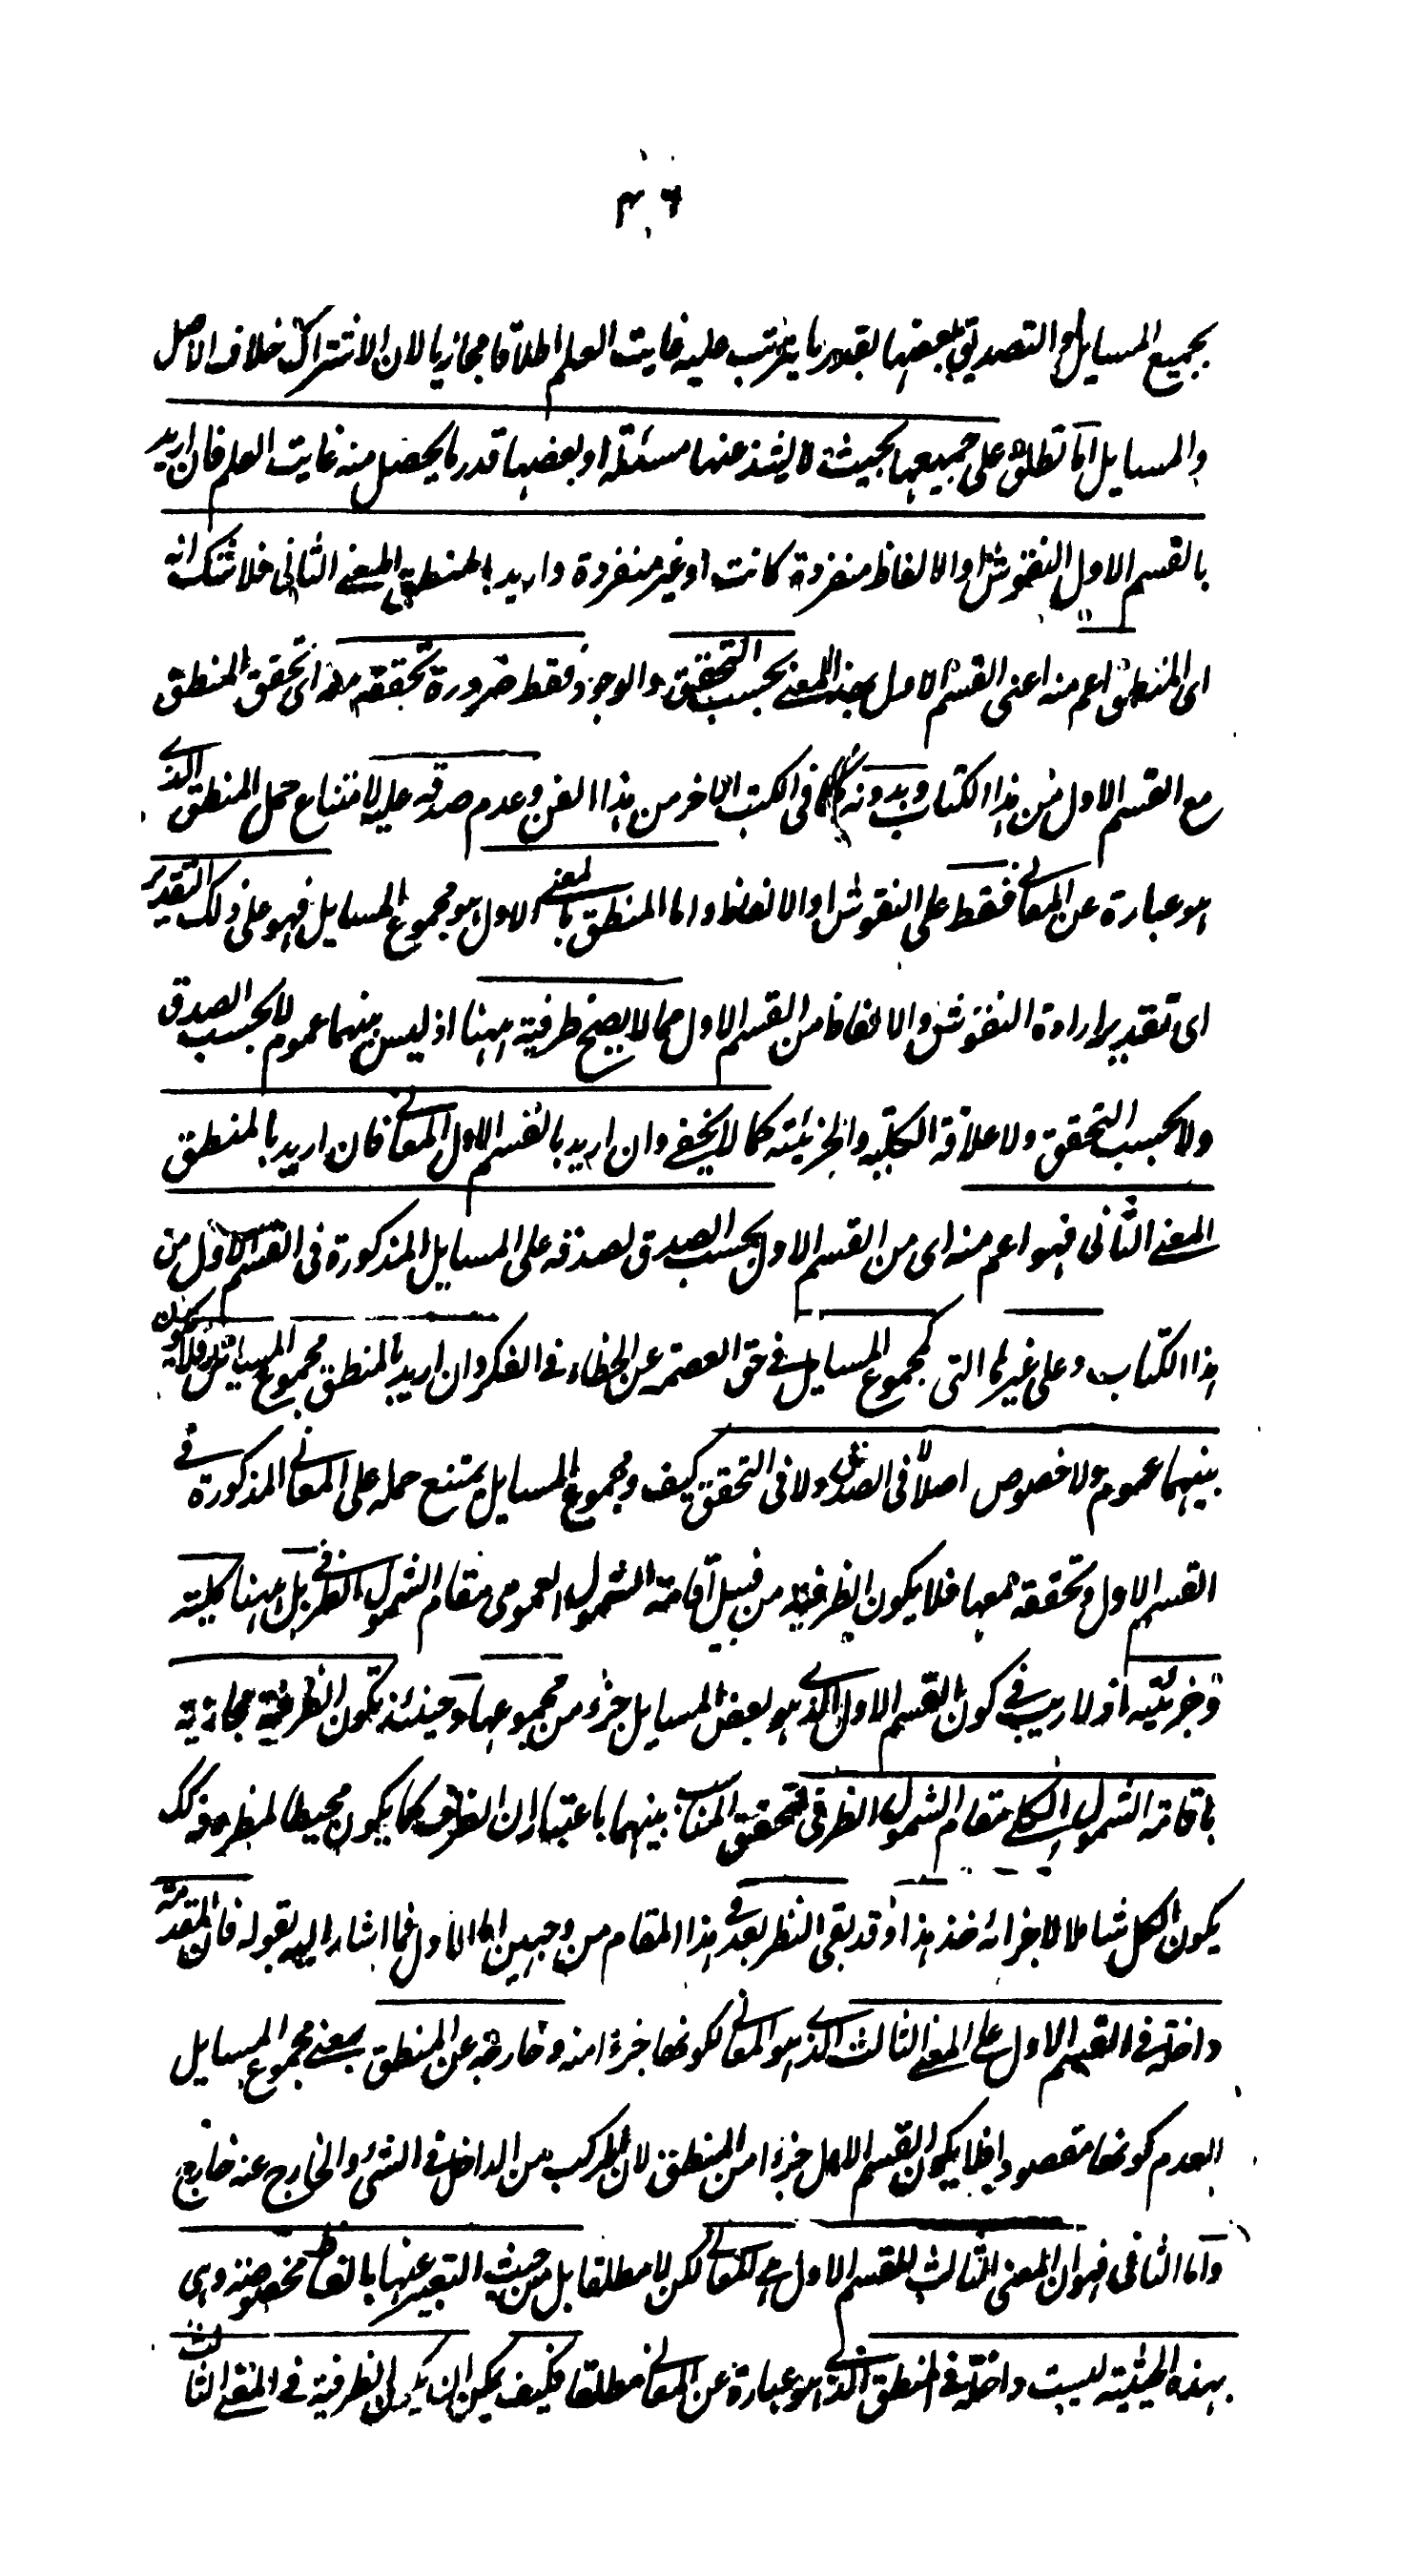 ٤٦
بجميع المسايل والتصديق ببعضها بقدر ما يترتب عليه غايت العلم اطلاقا مجازيا لان الاشتراك خلاف الاصل
والمسايل اما تطلق على جميعها بحيث لا يشذ عنها مسئلة او بعضها قدر ما يحصل منه غايت العلم فان اريد
بالقسم الاول النقوش او الالفاظ منفردة كانت او غير منفردة واريد بالمنطق المعنى الثانى فلا شك انه
اى المنطق اعم منه اعنى القسم الاول بهذا المعنى بحسب التحقق والوجود فقط ضرورة تحققه معه اى تحقق المنطق
مع القسم الاول من هذا الكتاب وبدونه كما فى الكتب الاخر من هذا الفن وعدم صدقه عليه لامتناع حمل المنطق الذى
هو عبارة عن المعانى فقط على النقوش او الالفاظ واما المنطق بالمعنى الاول هو مجموع المسايل فهو على ذلك التقدير
اى تقدير ارادة النقوش والالفاظ من القسم الاول مما لا يصح ظرفية ههنا اذ ليس بينهما عموم لا بحسب الصدق
ولا بحسب التحقق ولا علاقة الكلية والجزئية كما لا يخفى وان اريد بالقسم الاول المعانى فان اريد بالمنطق
المعنى الثانى فهو اعم منه اى من القسم الاول بحسب الصدق لصدقه على المسايل المذكورة فى القسم الاول من
هذا الكتاب وعلى غيرها التى لمجموع المسايل فى حق العصمة عن الخطاء فى الفكر وان اريد بالمنطق مجموع المسايل فلا يكون
بينهما عموم ولا خصوص اصلا فى الصدق ولا فى التحقق كيف ومجموع المسايل يمتنع حمله على المعانى المذكورة فى
القسم الاول وتحققه معها فلا يكون الظرفية من قبيل اقامة الشمول العمومى مقام الشمول الظرفى بل ههنا كلية
وجزئية اذ لا ريب فى كون القسم الاول الذى هو بعض المسايل جزء من مجموعها وحينئذ تكون الظرفية مجازية
باقامة الشمول الكلى مقام الشمول الظرفى لتحقق المناسبة بينهما باعتبار ان الظرف كما يكون محيطا لمظروفه كذلك
يكون الكل شاملا لاجزائه خذ هذا وقد بقى النظر بعد فى هذا المقام من وجهين اما الاول فما اشار اليه بقوله فان المقدمة
داخلة فى القسم الاول على المعنى الثالث الذى هو المعانى لكونها جزءا منه وخارجة عن المنطق بمعنى مجموع المسايل
لعدم كونها مقصودا فلا يكون القسم الاول جزءا من المنطق لان المركب من الداخل فى الشئ والخارج عنه خارج
واما الثانى فهو ان المعنى الثالث للقسم الاول هى المعانى لكن لا مطلقا بل من حيث التعبير عنها بالفاظ مخصوصة وهى
بهذه الحيثية ليست داخلة فى المنطق الذى هو عبارة عن المعانى مطلقا فكيف يمكن ان الظرفية فى المعنى الثالث